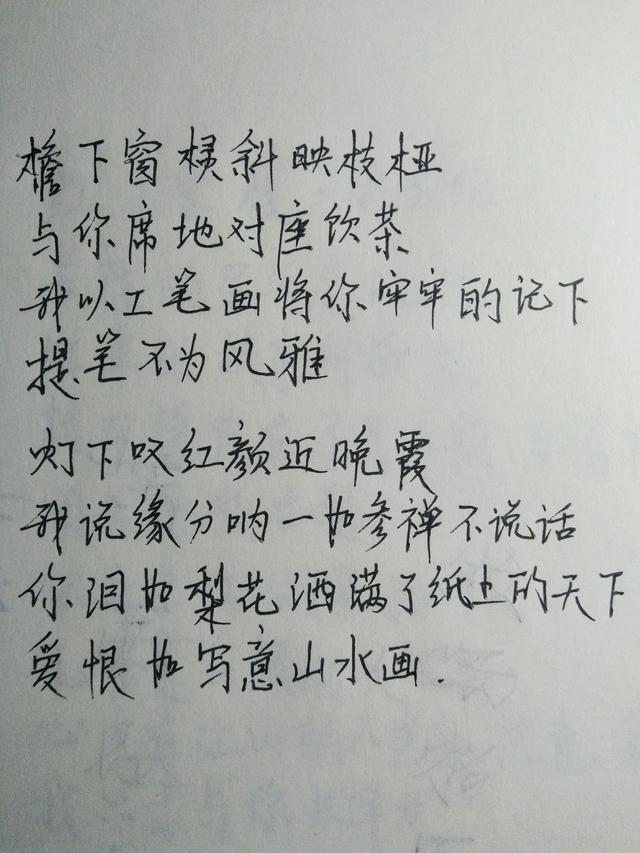 檐下窗棂斜映枝桠
与你席地对座饮茶
我以工笔画将你牢牢的记下
提笔不为风雅
灯下叹红颜近晚霞
我说缘分呐一如参禅不说话
你泪如梨花洒满了纸上的天下
爱恨如写意山水画.